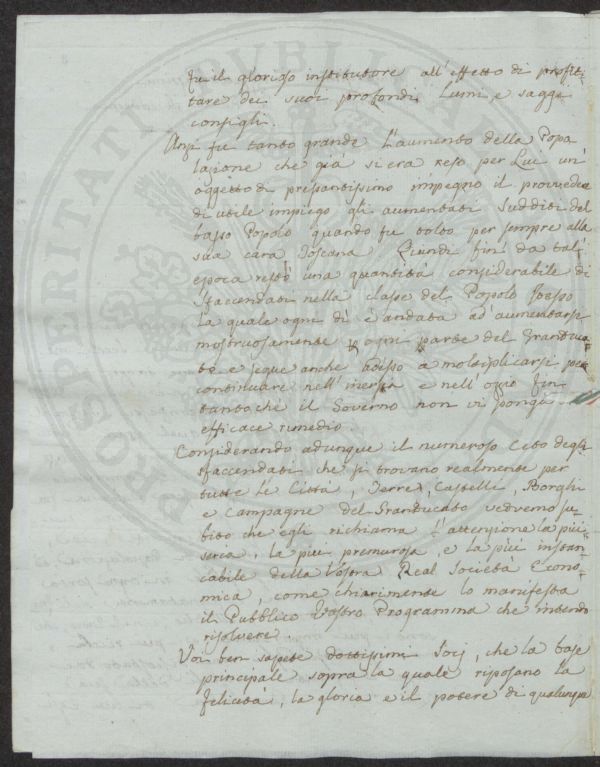 fu il glorioso institutore all'effetto di profit
tare dei suoi profondi Lumi, e saggi
consigli.
Anzi fu tanto grande l'aumento della Popo
lazione che già si era reso per Lui un'
oggetto di pressantissimo impegno il provvedere
di utile impiego gli aumentati sudditi del
basso Popolo quando fu tolto per sempre alla
sua cara Toscana. Quindi fin' da tal'
epoca restò una quantità considerabile di
sfaccendati nella classe del Popolo stesso
la quale ogni dì è andata ad' aumentarsi
mostruosamente ogni parte del Granduca
to e segue anche adesso a moltiplicarsi per
continuare nell'inerzia e nell'ozio fin
tantoche il Governo non vi ponga
efficace rimedio.
Considerando adunque il numeroso Ceto degli
sfaccendati che si trovano realmente per
tutte le Città, Terre, Castelli, Borghi
e Campagne del Granducato vedremo su
bito che egli richiama l'attenzione la più
seria, la più premurosa, e la più instan
cabile della Vostra Real Società Econo
mica, come chiaramente lo manifesta
il Pubblico Vostro Programma che intendo
risolvere.
Voi ben sapete dottissimi Socj, che la base
principale sopra la quale riposano la
felicità, la gloria e il potere di qualunque
PROSPERITATI PUBLICAE